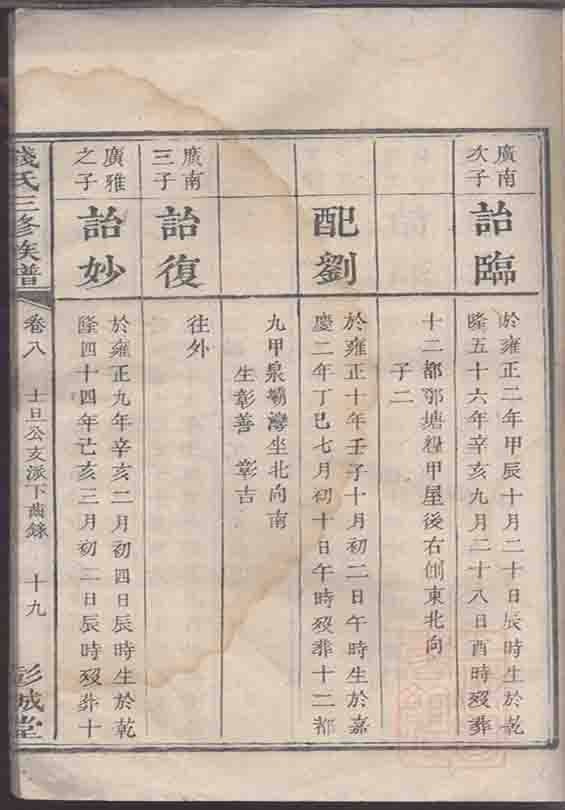 廣南次子
詒臨
於雍正二年甲辰十月二十日辰時生於乾
隆五十六年辛亥九月二十八日酉時歿葬
十二都鄂塘糧甲屋後右側東北向
子二
配劉
於雍正十年壬子十月初二日午時生於嘉
慶二年丁巳七月初十日午時歿葬十二都
九甲泉壩灣坐北向南
生彰善 彰吉
廣南三子
詒復
往外
廣雅之子
詒妙
於雍正九年辛亥二月初四日辰時生於乾
隆四十四年己亥三月初二日辰時歿葬十
錢氏三修族譜
卷八
士旦公支派下齒錄
十九
彭城堂